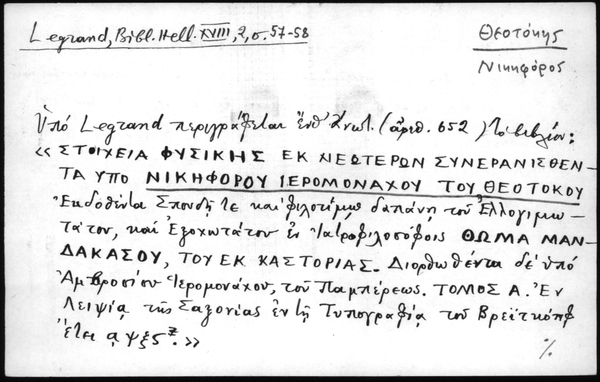 Legrand, Bibl. Hell. XVIII, 2, σ. 57-58
Θεοτόκης
Νικηφόρος
Ὑπό Legrand περιγράφεται ἐνθ' ἀνωτ. (ἀριθ. 652) τό βιβλίον:
« ΣΤΟΙΧΕΙΑ ΦΥΣΙΚΗΣ ΕΚ ΝΕΩΤΕΡΩΝ ΣΥΝΕΡΑΝΙΣΘΕΝ-
ΤΑ ΥΠΟ ΝΙΚΗΦΟΡΟΥ ΙΕΡΟΜΟΝΑΧΟΥ ΤΟΥ ΘΕΟΤΟΚΟΥ
Ἐκδοθέντα Σπουδῇ τε καί φιλοτίμῳ δαπάνῃ τοῦ Ἐλλογιμω-
τάτου, καί Ἐξοχωτάτου ἐν Ἰατροφιλοσόφοις ΘΩΜΑ ΜΑΝ-
ΔΑΚΑΣΟΥ, ΤΟΥ ΕΚ ΚΑΣΤΟΡΙΑΣ. Διορθωθέντα δέ ὑπό
Ἀμβροσίου Ἱερομονάχου, τοῦ Παμπέρεως. ΤΟΜΟΣ Α. Ἐν
Λειψίᾳ τῆς Σαξονίας ἐν τῇ Τυπογραφίᾳ τοῦ Βρεϊτκόπφ
Ἔτει αψξς. »
%